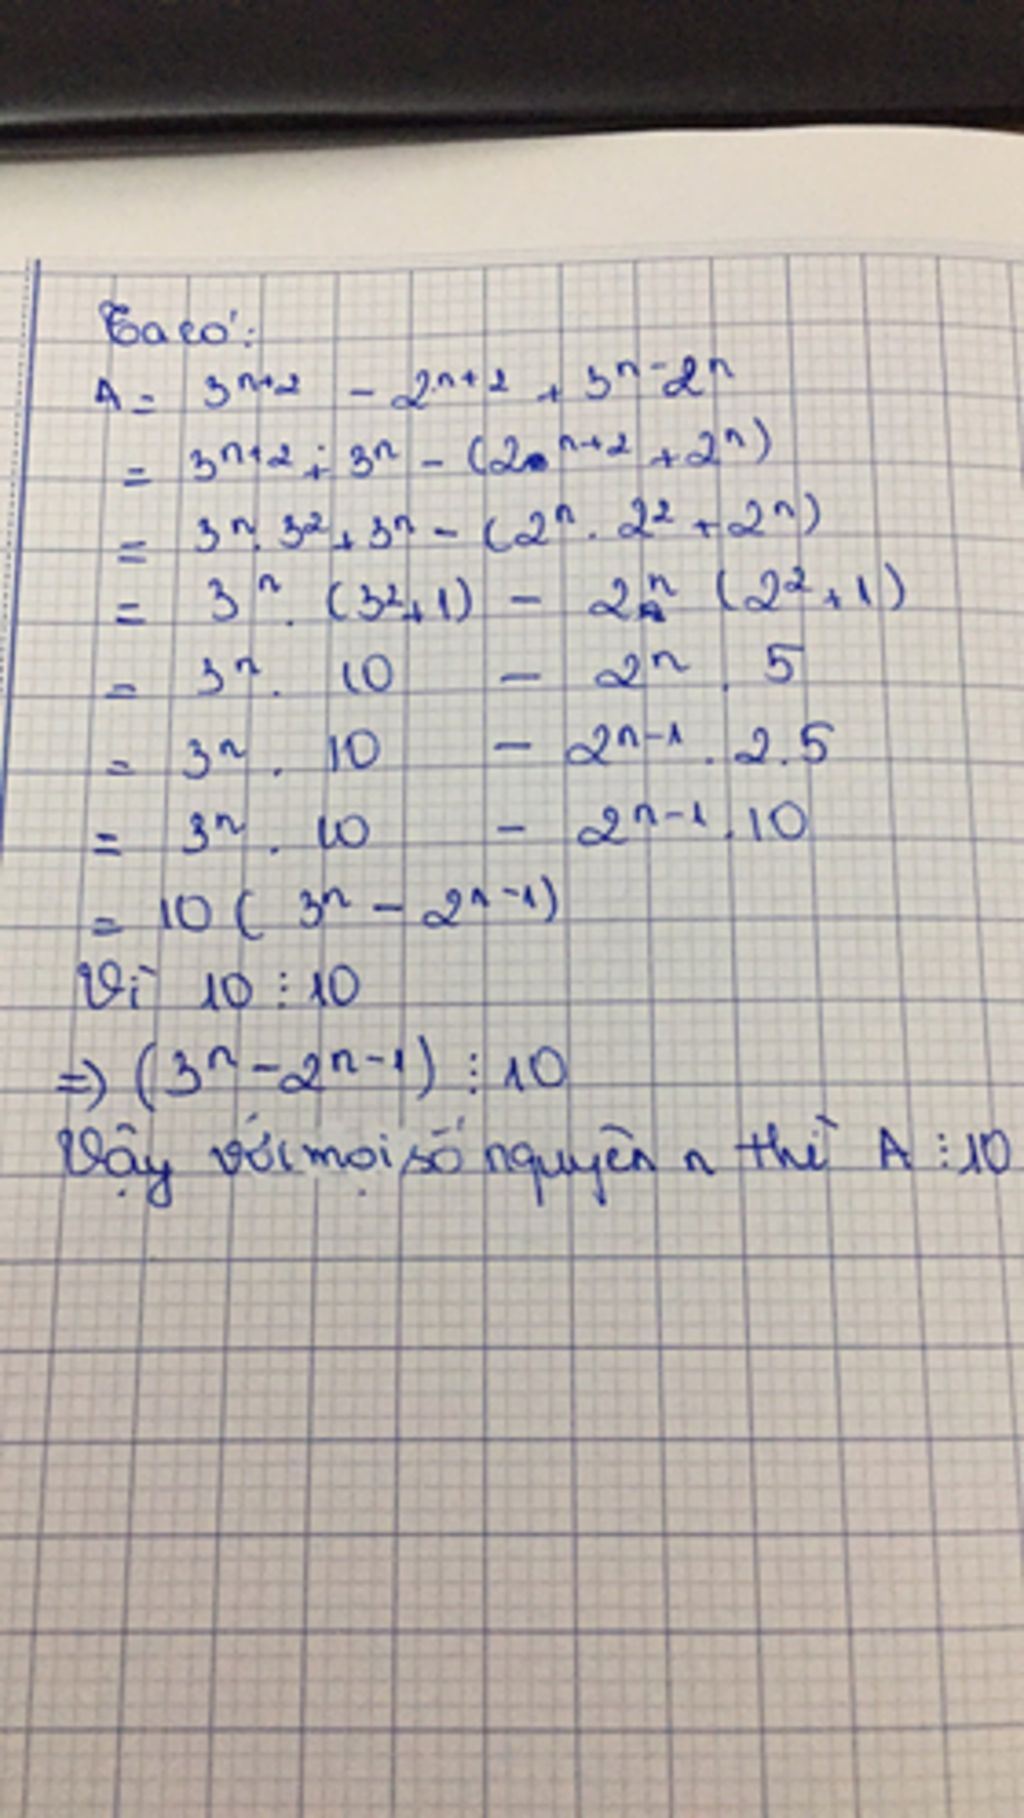 Ta có:
A = 3ⁿ⁺² - 2ⁿ⁺² + 3ⁿ - 2ⁿ
= 3ⁿ⁺² + 3ⁿ - (2ⁿ⁺² + 2ⁿ)
= 3ⁿ. 3² + 3ⁿ - (2ⁿ . 2² + 2ⁿ)
= 3ⁿ . (3² + 1) - 2ⁿ (2² + 1)
= 3ⁿ . 10 - 2ⁿ . 5
= 3ⁿ . 10 - 2ⁿ⁻¹ . 2.5
= 3ⁿ . 10 - 2ⁿ⁻¹ . 10
= 10 ( 3ⁿ - 2ⁿ⁻¹)
Vì 10 ⋮ 10
=> (3ⁿ - 2ⁿ⁻¹) ⋮ 10
Vậy với mọi số nguyên n thì A ⋮ 10